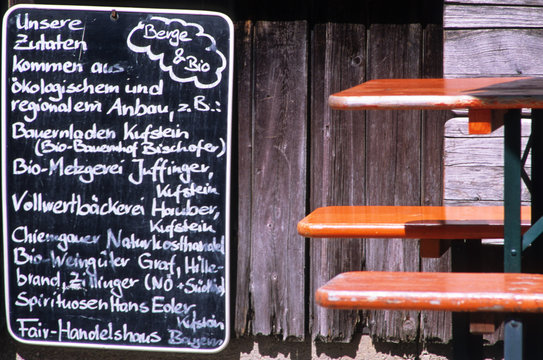 Unsere
Zutaten
"Berge
& Bio
kommen aus
ökologischem und
regionalem Anbau, z.B.:
Bauernladen Kufstein
(Bio-Bauernhof Bischofer)
Bio-Metzgerei Juffinger,
Kufstein
Vollwertbäckerei Hauber,
Kufstein
Chiemgauer Naturkosthandel
Bio-Weingüter Graf, Hille-
brand, Zillinger (NÖ + Südtirol)
Spirituosen Hans Eder,
Kufstein
Fair-Handelshaus Bayern